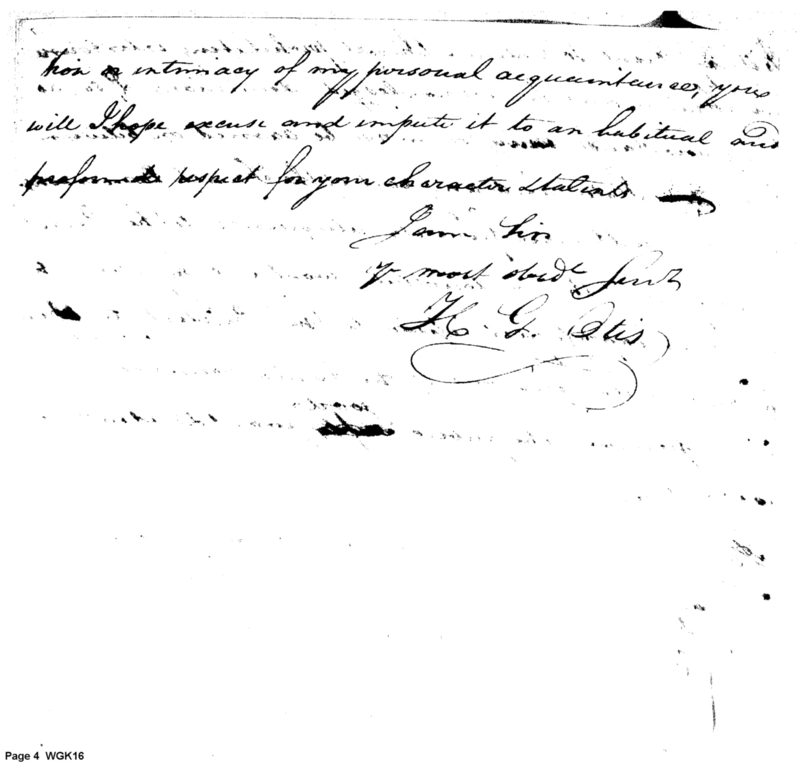 tion or intimacy of my personal acquaintance, you
will I hope excuse and impute it to an habitual and
profound respect for your character & talents
I am Sir
yr most obedt Servt
H. G. Otis
Page 4 WGK16